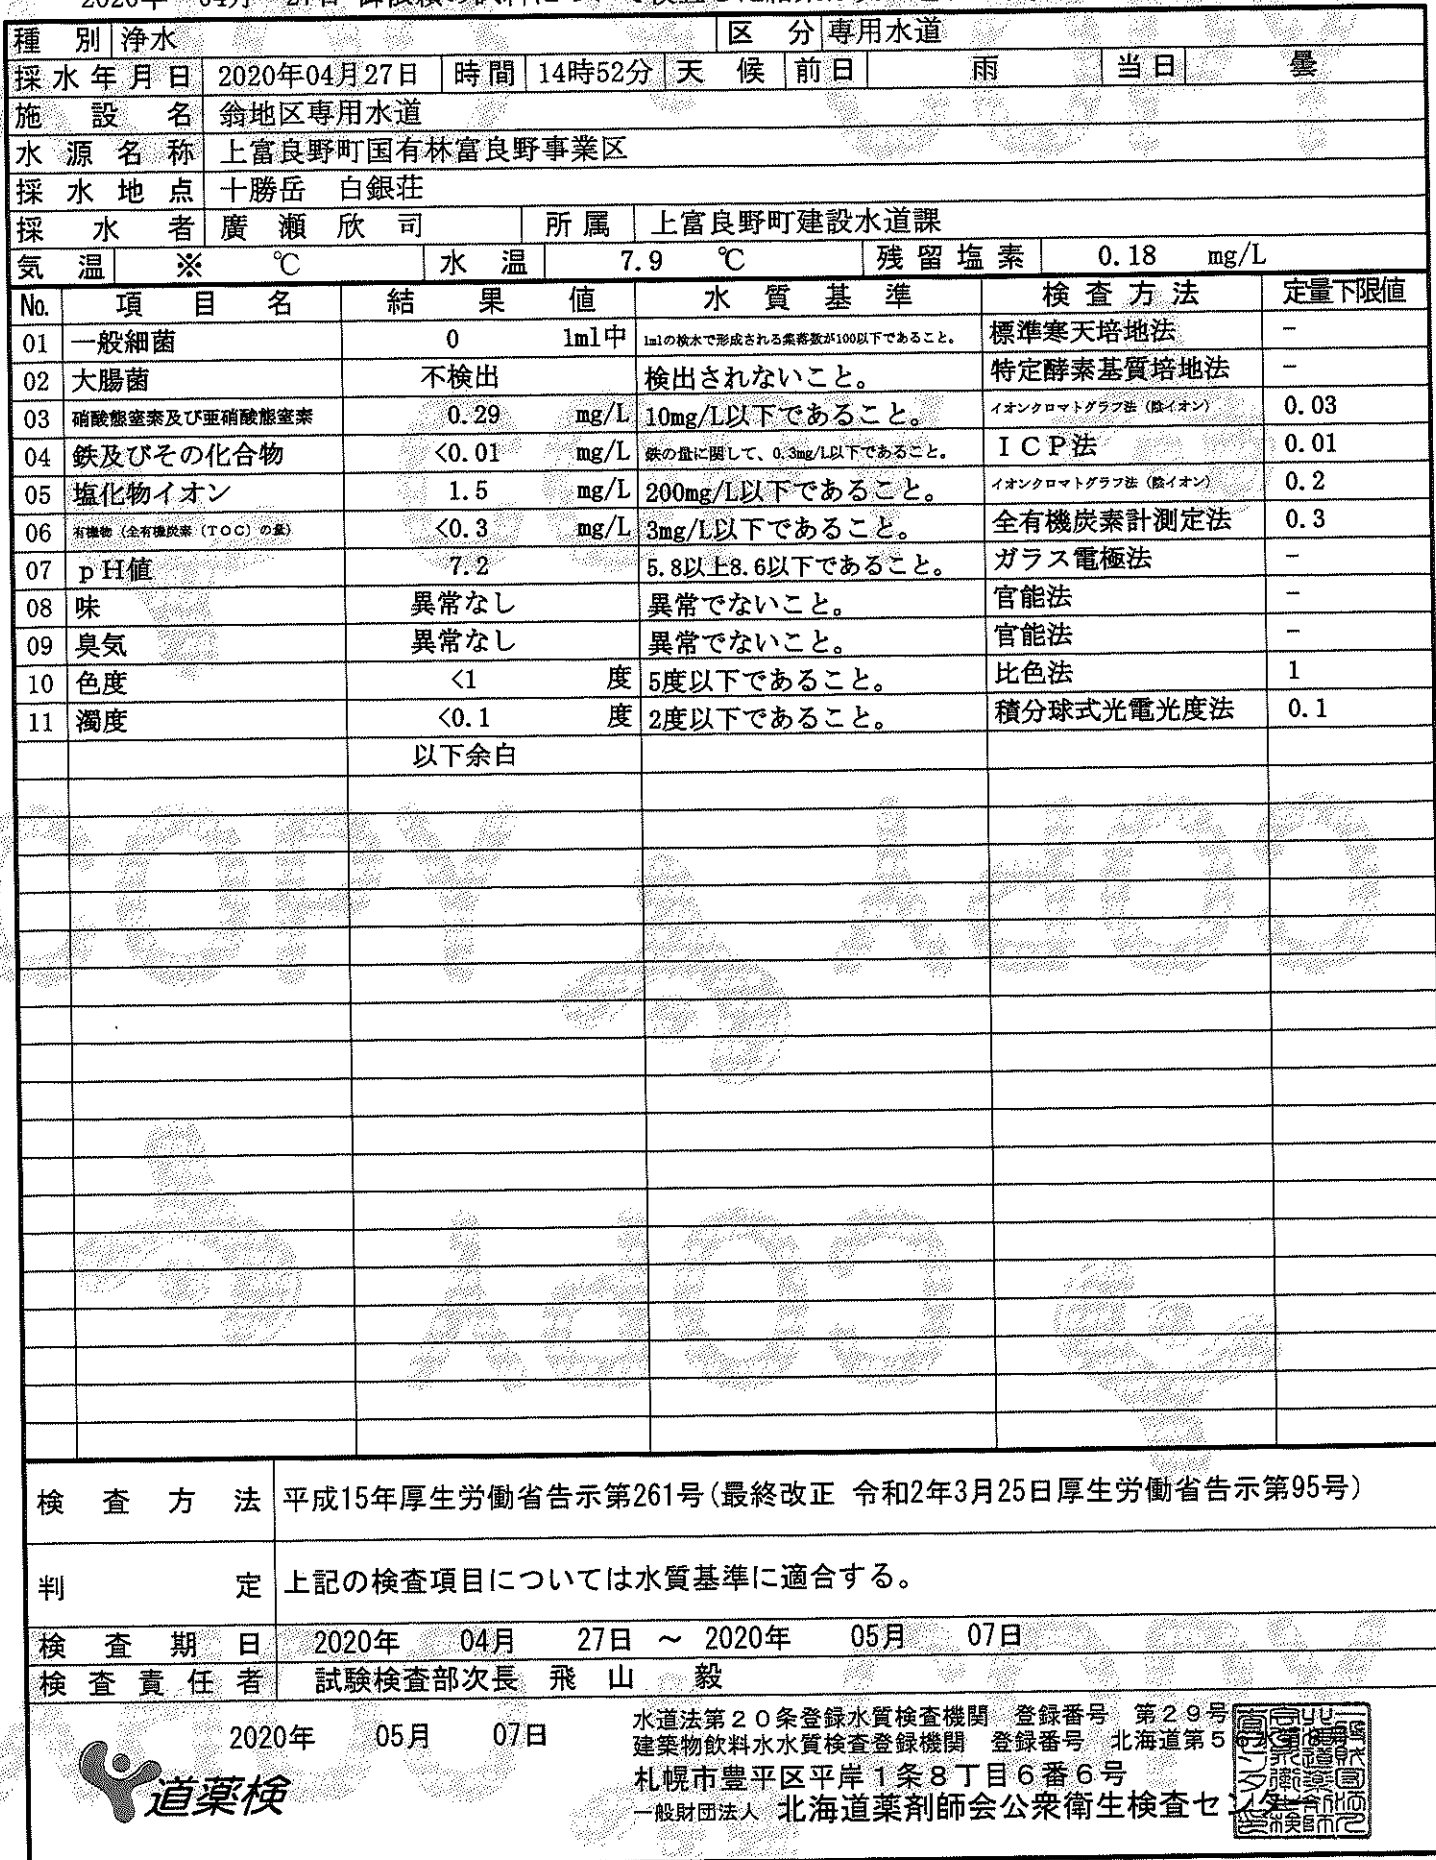 種別 浄水 区分 専用水道
採水年月日 2020年04月27日 時間 14時52分 天候 前日 雨 当日 曇
施設名 翁地区専用水道
水源名称 上富良野町国有林富良野事業区
採水地点 十勝岳 白銀荘
採水者 廣瀬欣司 所属 上富良野町建設水道課
気温 ※ ℃ 水温 7.9 ℃ 残留塩素 0.18 mg/L
No. 項目名 結果値 水質基準 検査方法 定量下限値
01 一般細菌 0 1ml中 1mlの検水で形成される集落数が100以下であること。 標準寒天培地法 −
02 大腸菌 不検出 検出されないこと。 特定酵素基質培地法 −
03 硝酸態窒素及び亜硝酸態窒素 0.29 mg/L 10mg/L以下であること。 イオンクロマトグラフ法（陰イオン） 0.03
04 鉄及びその化合物 <0.01 mg/L 鉄の量に関して、0.3mg/L以下であること。 ＩＣＰ法 0.01
05 塩化物イオン 1.5 mg/L 200mg/L以下であること。 イオンクロマトグラフ法（陰イオン） 0.2
06 有機物（全有機炭素（ＴＯＣ）の量） <0.3 mg/L 3mg/L以下であること。 全有機炭素計測定法 0.3
07 ｐＨ値 7.2 5.8以上8.6以下であること。 ガラス電極法 −
08 味 異常なし 異常でないこと。 官能法 −
09 臭気 異常なし 異常でないこと。 官能法 −
10 色度 <1 度 5度以下であること。 比色法 1
11 濁度 <0.1 度 2度以下であること。 積分球式光電光度法 0.1
以下余白
検査方法 平成15年厚生労働省告示第261号(最終改正 令和2年3月25日厚生労働省告示第95号)
判定 上記の検査項目については水質基準に適合する。
検査期日 2020年 04月 27日 ～ 2020年 05月 07日
検査責任者 試験検査部次長 飛山 毅
2020年 05月 07日
水道法第２０条登録水質検査機関 登録番号 第２９号
建築物飲料水水質検査登録機関 登録番号 北海道第５
札幌市豊平区平岸１条８丁目６番６号
一般財団法人 北海道薬剤師会公衆衛生検査センター
道薬検
COPY
COPY
COPY